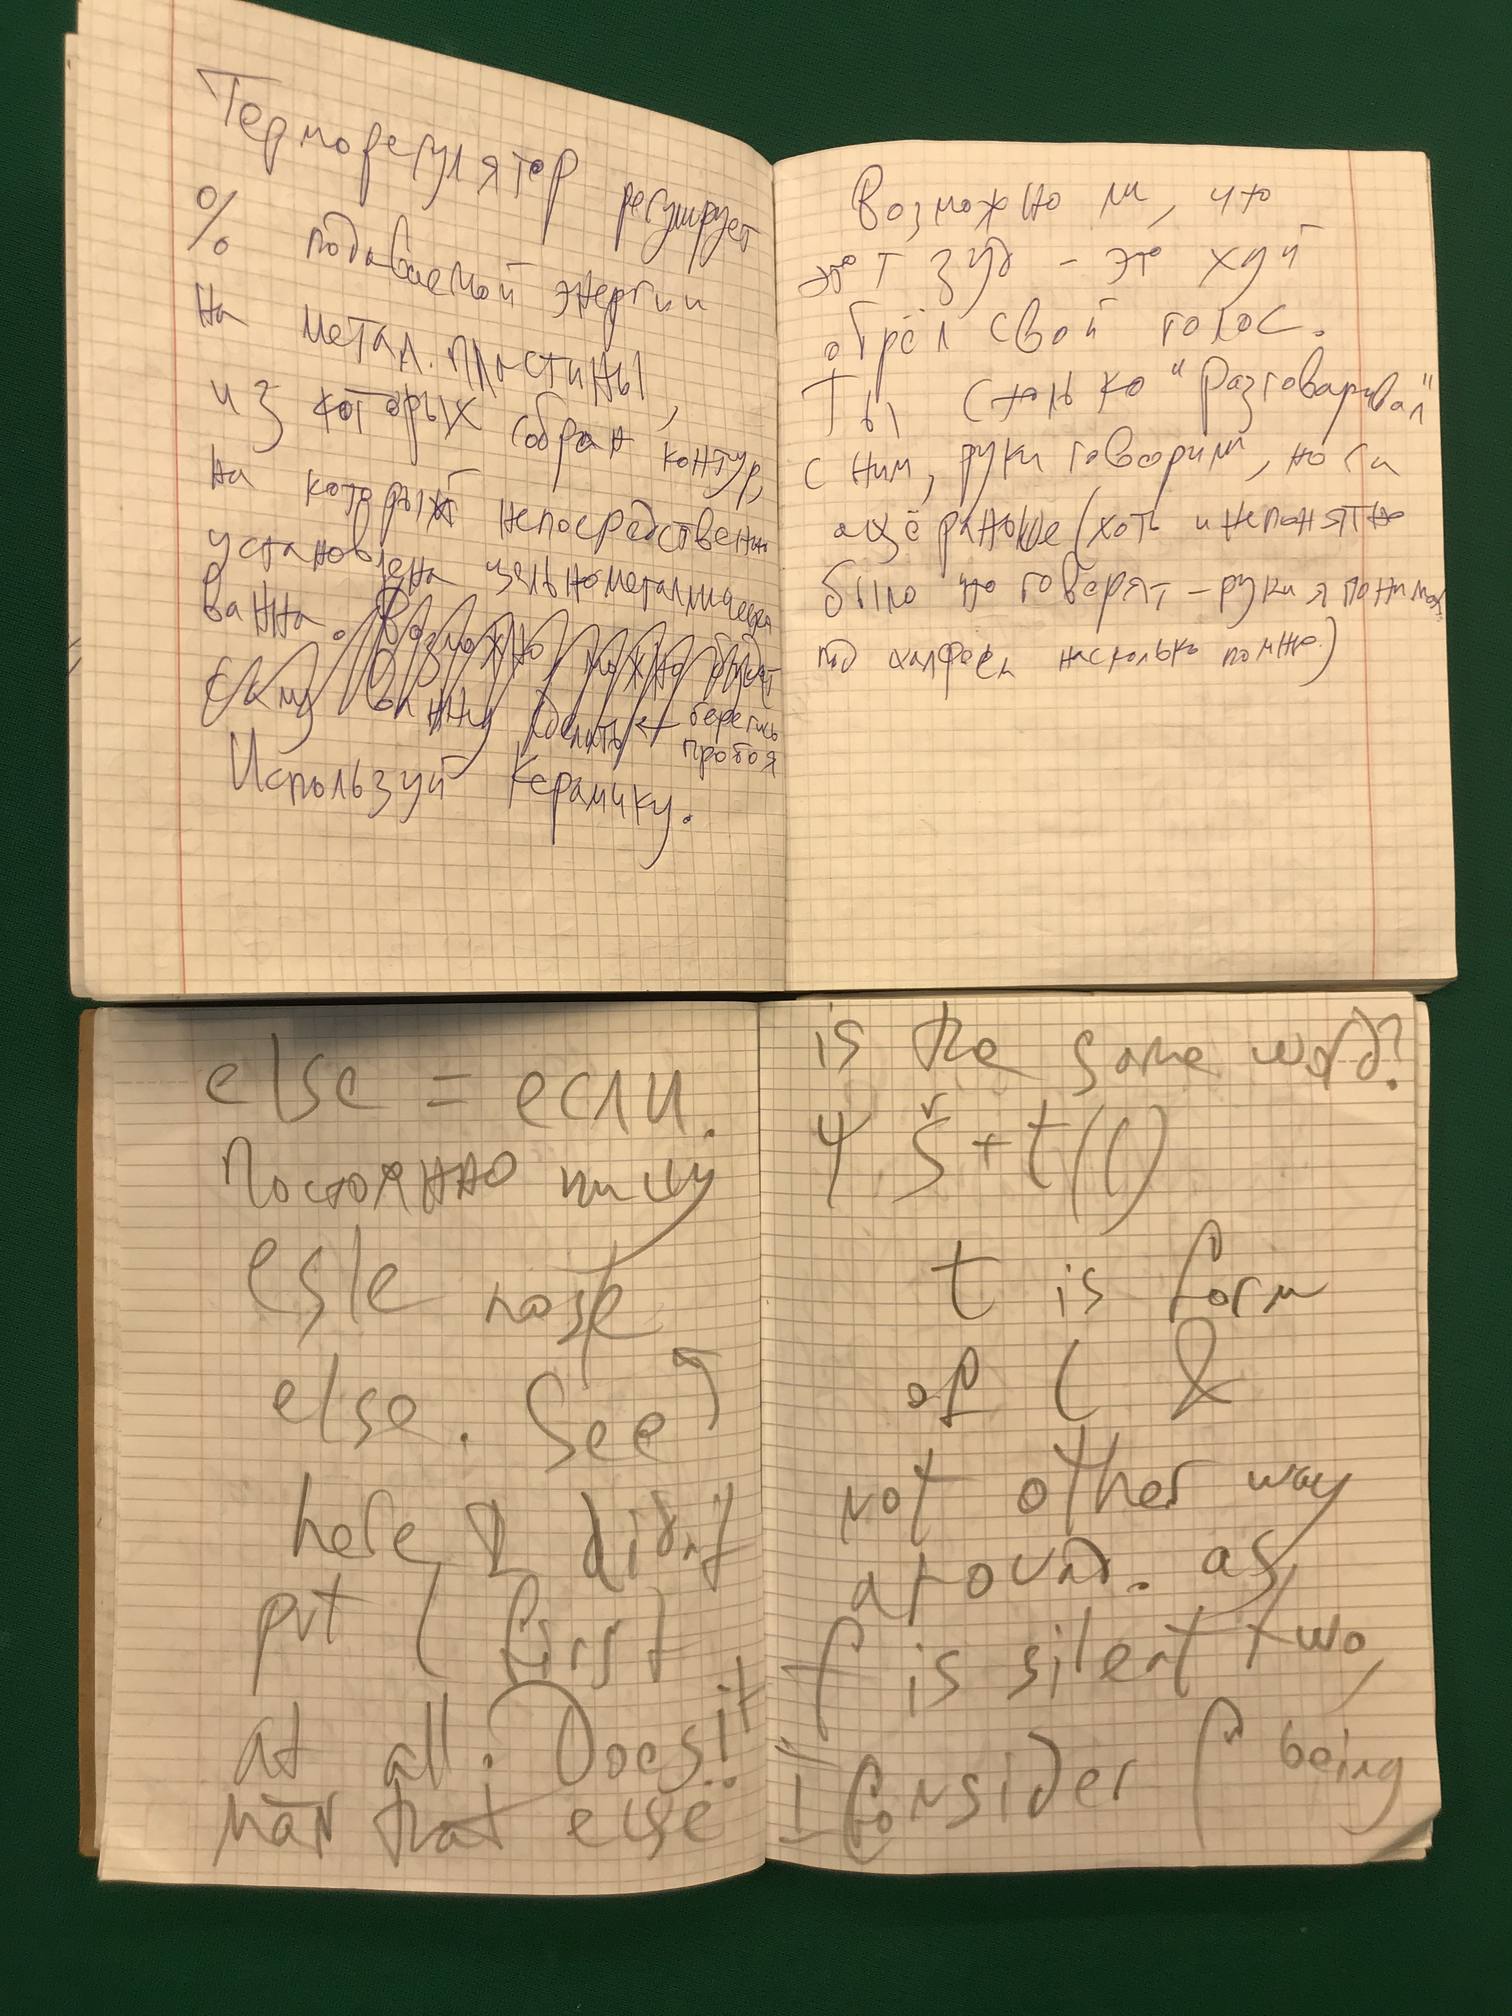 Терморегулятор регулирует
% подаваемой энергии
на метал. пластины,
из которых собран контур,
на который непосредственно
установлена цельнометаллическая
ванна. Возможно можно будет
саму ванну сделать ← берегись
пробоя
Используй керамику.
Возможно ли, что
этот зуд - это хуй
обрёл свой голос.
Ты столько "разговаривал"
с ним, руки говорили, ноги
ещё раньше (хоть и непонятно
было что говорят - руки я понимал
под насколько помню.)
else = если.
Постоянно пишу
esle
else. See
here, I didnt
put ( first
at all. Does it
that else
is the same word?
t is form
of ( &
not other way
around. as
f is silent two,
I consider f being